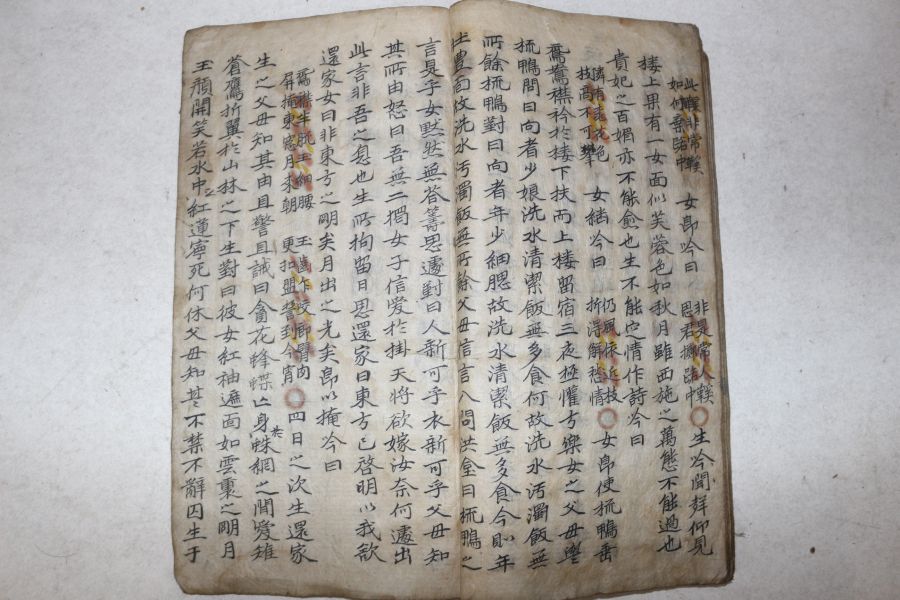 此聲非常聲
如何棄路中
女郎吟曰
非是常人聲
思君擲路中
生吟聞詳仰見
樓上果有一女面似芙蓉色如秋月雖西施之萬態不能過也
貴妃之百媚亦不能愈也生不能定情作詩吟曰
隣有桃花色
枝高不可攀
女結吟曰
仍風依近枝
折得解愁情
女郎使梳鴨垂
鴛鴦襟衿於樓下扶而上樓留宿三夜極懽方樂女之父母與
梳鴨問曰向者少娘洗水清潔飯無多食何故洗水汚濁飯無
所餘梳鴨對曰向者年少細腮故洗水清潔飯無多食今則年
壯豊面故洗水汚濁飯無所餘父母言言八問洪童曰梳鴨之
言是乎女黙然無答籌思遽對曰人新可乎衣新可乎父母知
其所由怒曰吾無二獨女子信愛於掛天將欲嫁汝奈何遽出
此言非吾之息也生所拘留日思還家曰東方已啓明以我欲
還家女曰非東方之明矣月出之光矣郎以掩吟曰
鴛襟半脱玉細腰
屏掩東窓月來朝
玉齒作咬卿臂肉
更把盟誓到今宵
四日之次生還家
生之父母知其由且警且誡曰貪花蜂蝶亡身於蛛網之間愛雉
蒼鷹折翼於山林之下生對曰彼女紅袖遮面如雲裏之明月
玉顏開笑若水中之紅蓮寧死何休父母知其不禁不辭囚生于